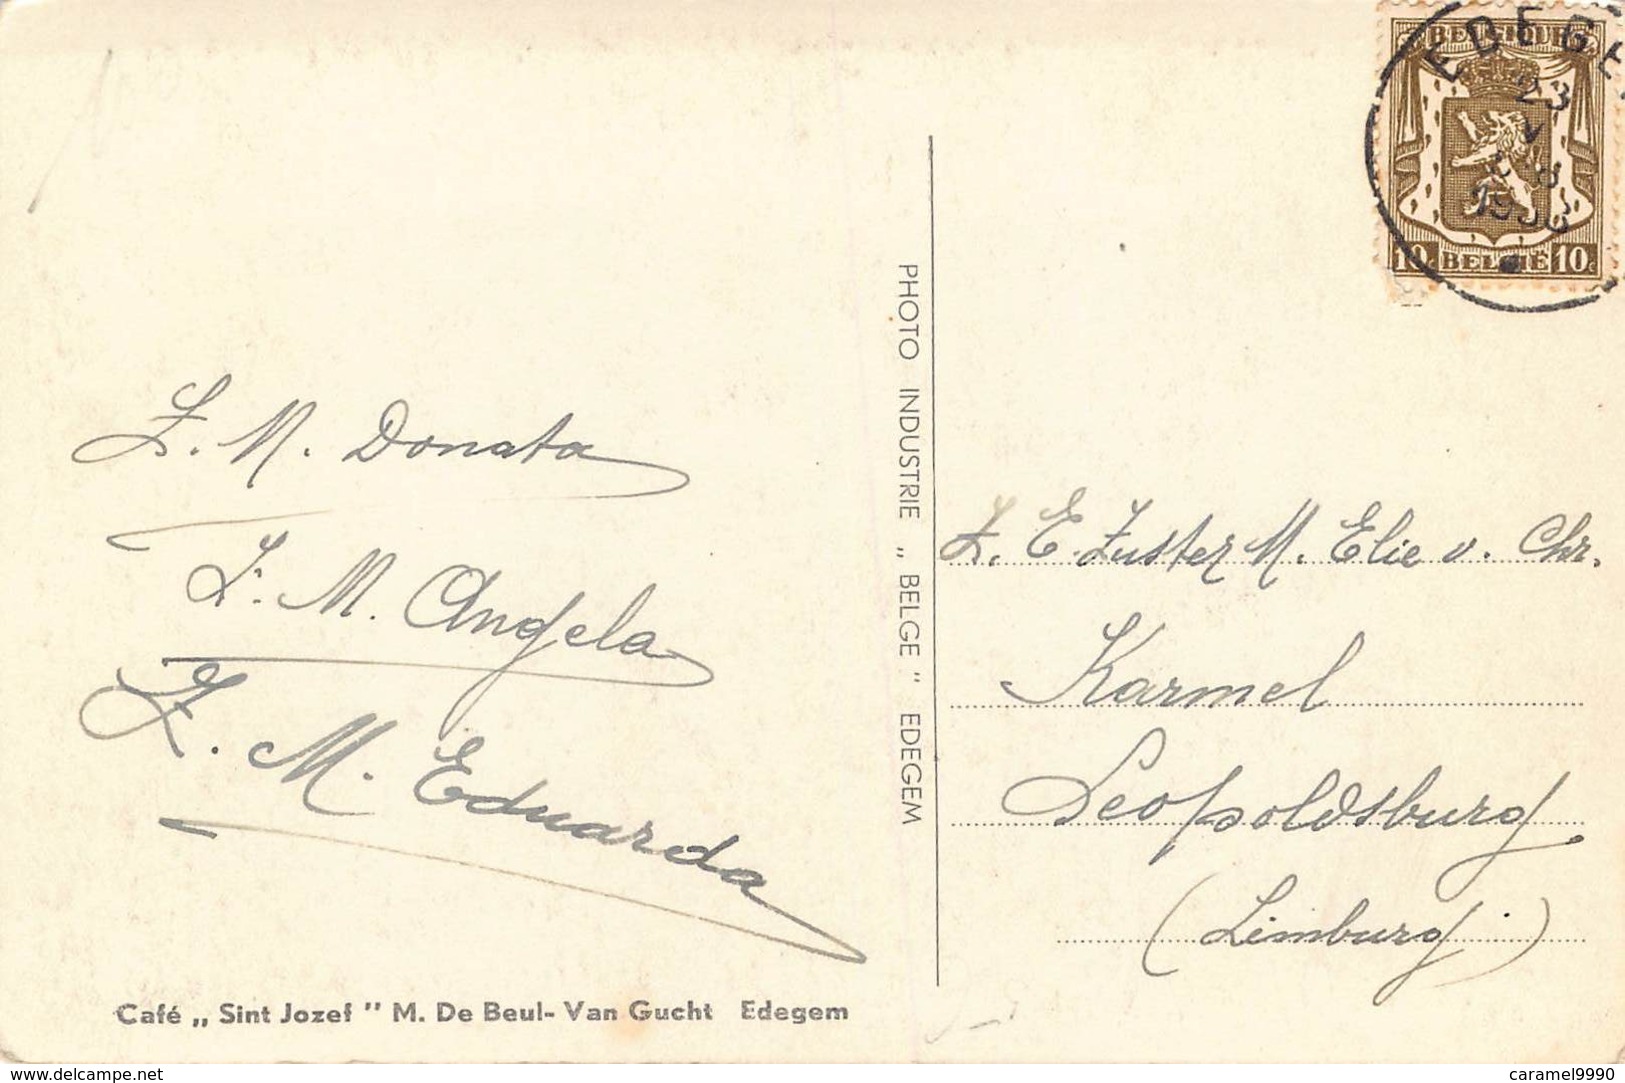 Z. M. Donata
Z. M. Angela
Z. M. Eduarda
Café „ Sint Jozef " M. De Beul- Van Gucht Edegem
PHOTO INDUSTRIE „ BELGE " EDEGEM
EDEGEM
23
1938
BELGIQUE
10c BELGIË 10c
Z. E. Zuster M. Elie v. Chr.
Karmel
Leopoldsburg
(Limburg)
https://www.delcampe.net
caramel9990